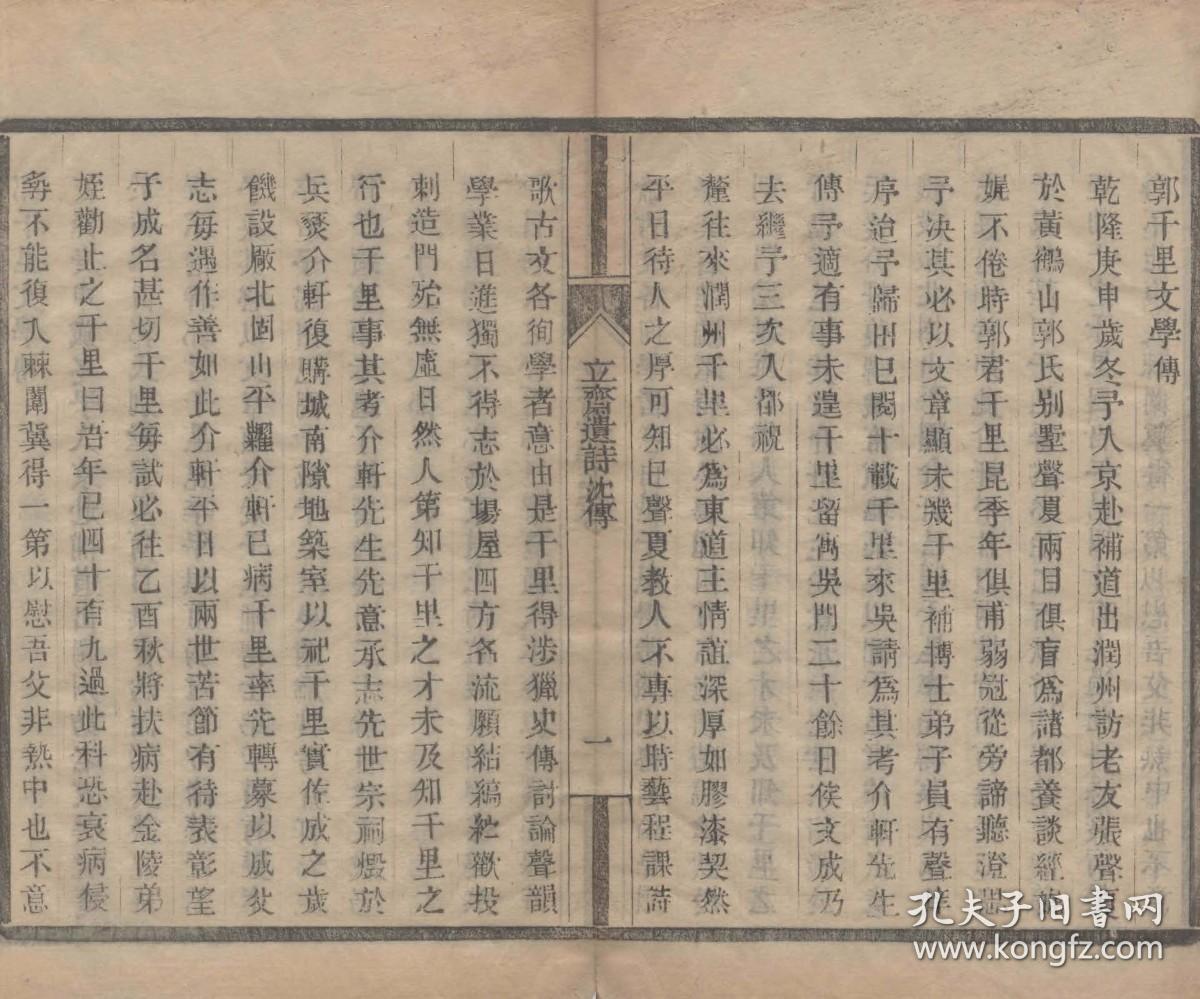 郭千里文學傳
乾隆庚申歲冬予入京赴補道出潤州訪老友張聲夏
於黃鶴山郭氏别墅聲夏兩目俱盲爲諸都養談經
娓不倦時郭君千里昆季年俱甫弱冠從旁諦聽澄
予決其必以文章顯未幾千里補博士弟子員有聲庠
序迨予歸田已閱十載千里來吳請爲其考介軒先生
傳予適有事未遑千里留寓吳門二十餘日俟文成乃
去繼予三次入都祝
釐往來潤州千里必爲東道主情誼深厚如膠漆契然
平日待人之厚可知已聲夏教人不專以時藝程課詩
立齋遺詩 沈傳 一
歌古文各徇學者意由是千里得涉獵史傳討論聲韻
學業日進獨不得志於場屋四方名流願結縞紵歡投
刺造門殆無虛日然人第知千里之才未及知千里之
行也千里事其考介軒先生先意承志先世宗祠燬於
兵燹介軒復購城南隙地築室以祀千里實佐成之歲
饑設廠北固山平糶介軒已病千里率先轉募以成父
志每遇作善如此介軒平日以兩世苦節有待表彰望
子成名甚切千里每試必往乙酉秋將扶病赴金陵弟
姪勸止之千里曰吾年已四十有九過此科恐衰病侵
尋不能復入棘闈冀得一第以慰吾父非熱中也不意
孔夫子旧书网
www.kongfz.com